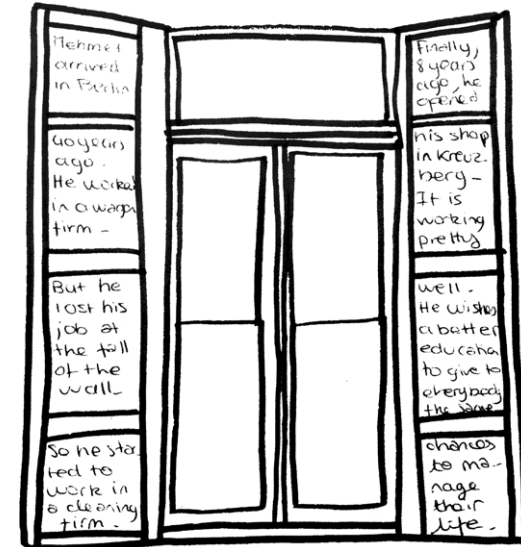 Mehmet
arrived
in Berlin
40 years
ago.
He worked
in a wagon
firm -
But he
lost his
job at
the fall
of the
wall_
So he star
ted to
work in
a cleaning
firm.
Finally,
8 years
ago, he
opened
his shop
in Kreuz-
berg -
It is
working
pretty
well.
He wishes
a better
education
to give to
everybody
the same
chances
to ma-
nage
their
life.